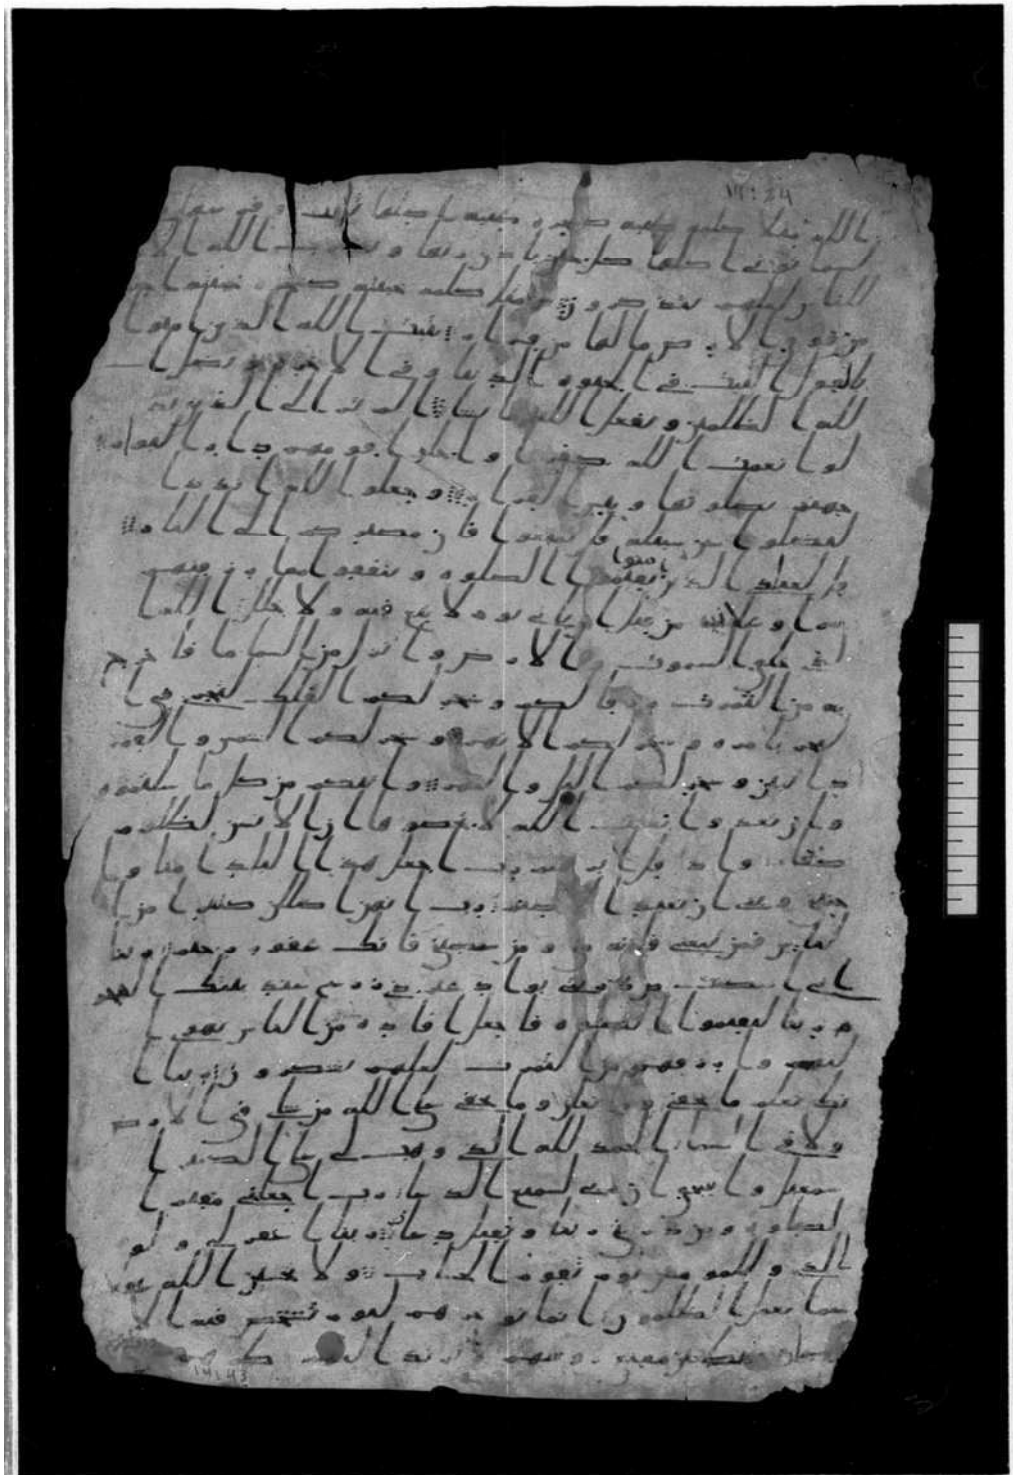 14:24
الله مثلا كلمه طيبه كشجره طيبه اصلها ثابت وفرعها
لسما توتي اكلها كل حين باذن ربها ويضرب الله الا
للناس لعلهم يتذكرون ومثل كلمه خبيثه كشجره خبيثه ا
من فوق الارض ما لها من قرار يثبت الله الذين امنوا
بالقول الثبت في الحيوه الدنيا وفي الاخره ويضل ا
لله الظلمين ويفعل الله ما يشا الم تر الى الذين بد
لوا نعمت الله كفرا واحلوا قومهم دار البوار
جهنم يصلونها وبيس القرار وجعلوا لله اندادا
ليضلوا عن سبيله قل تمتعوا فان مصيركم الى النار
قل لعبادي الذين امنوا يقيموا الصلوه وينفقوا مما رزقنهم
سرا وعلنيه من قبل ان ياتي يوم لا بيع فيه ولا خلل الله ا
لذي خلق السموت والارض وانزل من السما ما فاخرج
به من الثمرت رزقا لكم وسخر لكم الفلك لتجري في ا
لبحر بامره وسخر لكم الانهر وسخر لكم الشمس والقمر
دابين وسخر لكم اليل والنهر واتيكم من كل ما سالتموه
وان تعدوا نعمت الله لا تحصوها ان الانسن لظلوم
كفار واذ قال ابرهيم رب اجعل هذا البلد امنا وا
جنبني وبني ان نعبد الاصنام رب انهن اضللن كثيرا من ا
لناس فمن تبعني فانه مني ومن عصني فانك غفور رحيم ربنا
اني اسكنت من ذريتي بواد غير ذي زرع عند بيتك المحر
م ربنا ليقيموا الصلوه فاجعل افده من الناس تهوي ا
ليهم وارزقهم من الثمرت لعلهم يشكرون ربنا ا
نك تعلم ما نخفي وما نعلن وما يخفى على الله من شي في الارض
ولا في السما الحمد لله الذي وهب لي على الكبر ا
سمعيل واسحق ان ربي لسميع الدعا رب اجعلني مقيم ا
لصلوه ومن ذريتي ربنا وتقبل دعا ربنا اغفر لي ولو
الدي وللمومنين يوم يقوم الحساب ولا تحسبن الله غفلا
عما يعمل الظلمون انما يوخرهم ليوم تشخص فيه الا
بصار مهطعين مقنعي روسهم لا يرتد اليهم طرفهم
14:43